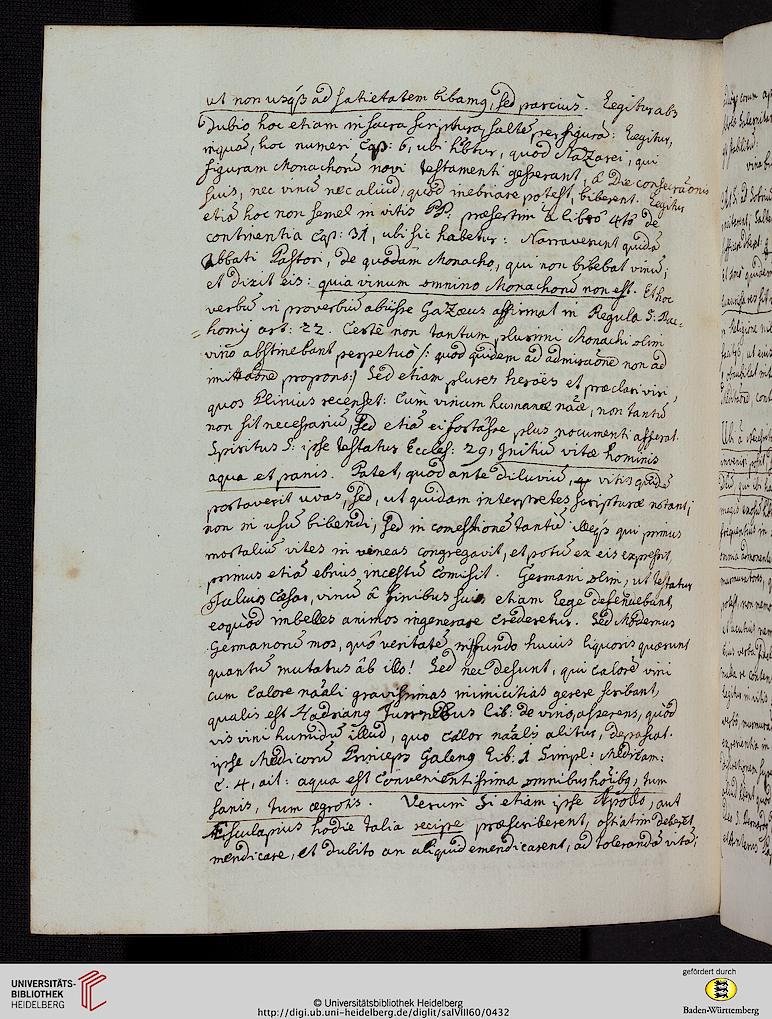 ut non usq́ ad satietatem bibamꝯ, sed parcius. Legitur abs
dubio hoc etiam in sacra scriptura, saltē per figurā: Legitur,
inquā, hoc numeri Cap: 6, ubi hr̄tur, quod Nazarei, qui
figuram Monachorū novi testamenti gesserant, â Die consecrāonis
suis, nec vinū nec aliud, quod inebriare potest, biberent. Legitur
etiā hoc non semel in vitis PP. præsertim â libro 4to de
continentia Cap: 31, ubi sic habetur: Narraverunt quidā
Abbati Pastori, de quodam Monacho, qui non bibebat vinū;
et dixit eis: quia vinum omnino Monachorū non est. Et hoc
verbū in proverbiū abiisse Gazæus affirmat in Regula S: Pac-
homij art: 22. Certè non tantum plurimi Monachi olim
vino abstinebant perpetuò /: quod quidem ad admirāone non ad
imitāone propono:/ Sed etiam plures heroës et præclari viri,
quos Plinius recenset: Cum vinum humanæ nāæ, non tantū
non sit necessariū, sed etiā ei fortasse plus nocumenti afferat.
Spiritus S: ipse testatur Eccles: 29, Initiū vitæ hominis
aqua et panis. Patet, quod ante diluviū, vitis quidē
portaverit uvas, sed, ut quidam interpretes scripturæ notant,
non in usū bibendi, sed in comestionē tantū: illeq́ qui primus
mortaliū vites in vineas congregavit, et potū ex eis expressit,
primus etiā ebrius incestū comisit. Germani olim, ut testatur
Julius Cæsar, vinū â finibus suis etiam lege defendebant,
eoquòd imbelles animos ingenerare crederetur. Sed Modernus
Germanorū mos, quô veritatē in fundo huius liquoris quærunt
quantū mutatus âb illo! Sed nec desunt, qui calorē vini
cum calore nāali gravissimas inimicitias gerere scribant,
qualis est Hadrianꝯ Turnebus lib: de vino, asserens, quòd
vis vini humidū illud, quo calor nāalis alitur, depascat.
ipse Medicorū Princeps Galenꝯ Lib: 1 Simpl: Medicam:
C. 4, ait: aqua est convenientissima omnibus hoībꝯ, tum
sanis, tum ægrotis. Verum Si etiam ipse Apollo, aut
Æsculapius hodie talia recipe præscriberent, ostiatim deberet
mendicare, et dubito an aliquid emendicarent, ad tolerandā vitā;
UNIVERSITÄTS-
BIBLIOTHEK
HEIDELBERG
© Universitätsbibliothek Heidelberg
http://digi.ub.uni-heidelberg.de/diglit/salVIII60/0432
gefördert durch
Baden-Württemberg